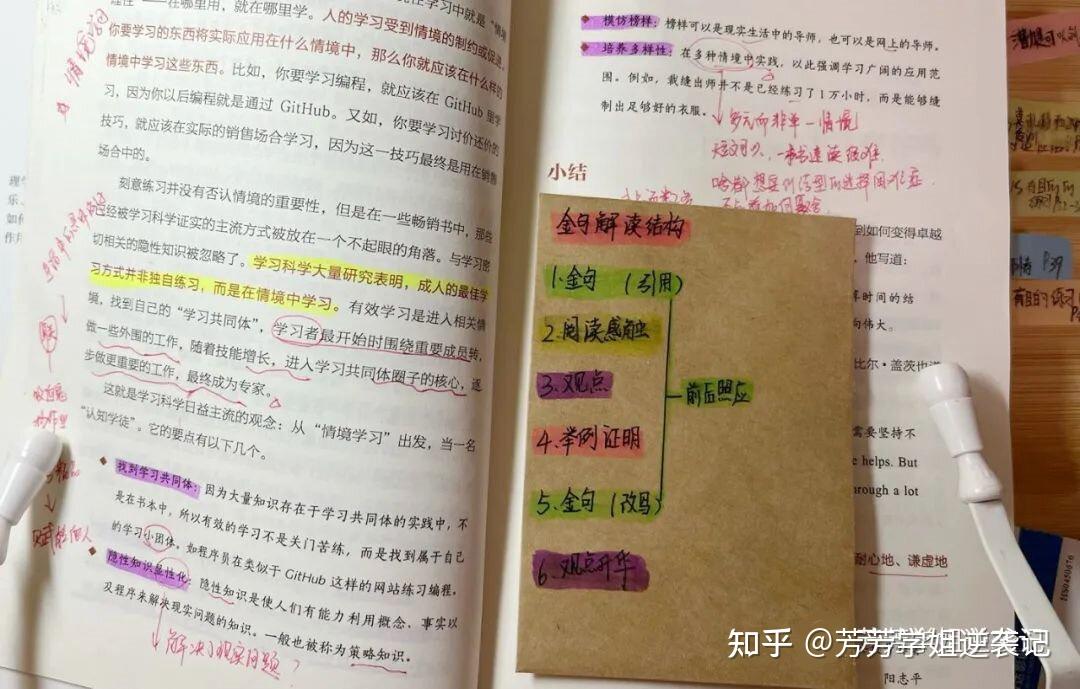 在哪里用，就在哪里学。人的学习受到情境的制约或促进。
你要学习的东西将实际应用在什么情境中，那么你就应该在什么样的
情境中学习这些东西。比如，你要学习编程，就应该在 GitHub 里学
习，因为你以后编程就是通过 GitHub。又如，你要学习讨价还价的
技巧，就应该在实际的销售场合学习，因为这一技巧最终是用在销售
场合中的。
刻意练习并没有否认情境的重要性，但是在一些畅销书中，那些
已经被学习科学证实的主流方式被放在一个不起眼的角落。与学习密
切相关的隐性知识被忽略了。学习科学大量研究表明，成人的最佳学
习方式并非独自练习，而是在情境中学习。有效学习是进入相关情
境，找到自己的“学习共同体”，学习者最开始时围绕重要成员转，
做一些外围的工作，随着技能增长，进入学习共同体圈子的核心，逐
步做更重要的工作，最终成为专家。
这就是学习科学日益主流的观念：从“情境学习”出发，当一名
“认知学徒”。它的要点有以下几个。
找到学习共同体：因为大量知识存在于学习共同体的实践中，不
是在书本中，所以有效的学习不是关门苦练，而是找到属于自己
的学习小团体。如程序员在类似于 GitHub 这样的网站练习编程。
隐性知识显性化：隐性知识是使人们有能力利用概念、事实以
及程序来解决现实问题的知识。一般也被称为策略知识。
解决现实问题？
模仿榜样：榜样可以是现实生活中的导师，也可以是网上的导师。
培养多样性：在多种情境中实践，以此强调学习广阔的应用范
围。例如，裁缝出师并不是已经练习了1万小时，而是能够缝
制出足够好的衣服。
多元而非单一情境
小结
金句解读结构
1.金句（引用）
2.阅读感触
3.观点
4.举例证明
5.金句（改写）
6.观点升华
前后照应
到如何变得卓越
，他写道：
时间的结
向伟大。
比尔·盖茨也
需要坚持不
e helps. But
rough a lot
耐心地、谦虚地
阳志平
知乎 @芳芳学姐逆袭记